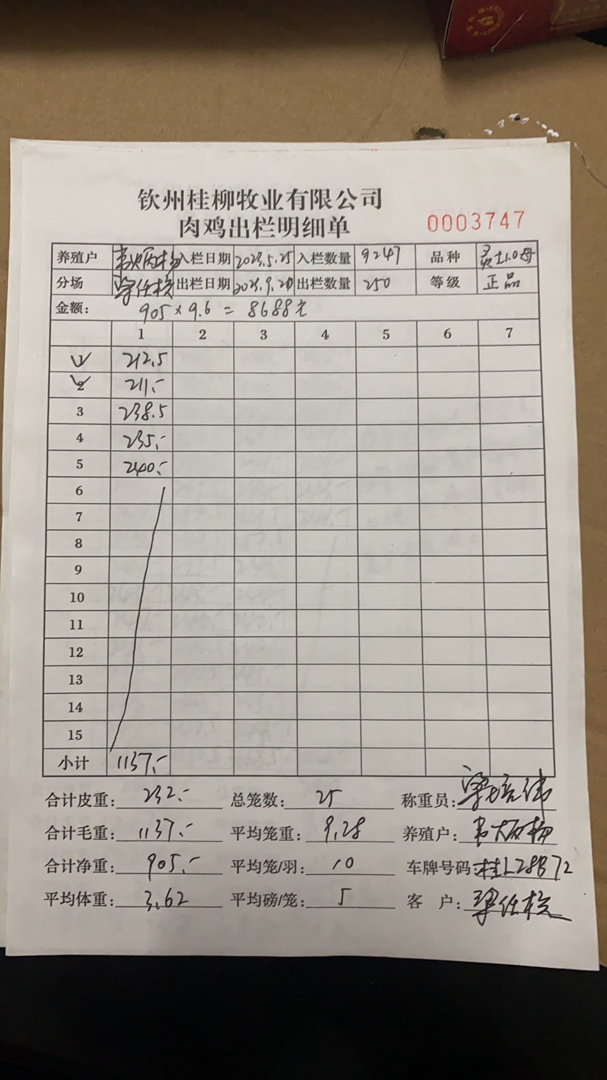 钦州桂柳牧业有限公司
肉鸡出栏明细单 0003747
养殖户 入栏日期 2023.5.25 入栏数量 9247 品种
分场 出栏日期 2023.9.20 出栏数量 250 等级 正品
金额: 905×9.6=8688元
1 2 3 4 5 6 7
1 212.5
2 211.-
3 238.5
4 235.-
5 240.-
6
7
8
9
10
11
12
13
14
15
小计 1137.-
合计皮重: 232.- 总笼数: 25 称重员:
合计毛重: 1137.- 平均笼重: 9.28 养殖户:
合计净重: 905.- 平均笼/羽: 10 车牌号码: 桂L28B72
平均体重: 3.62 平均磅/笼: 5 客 户: